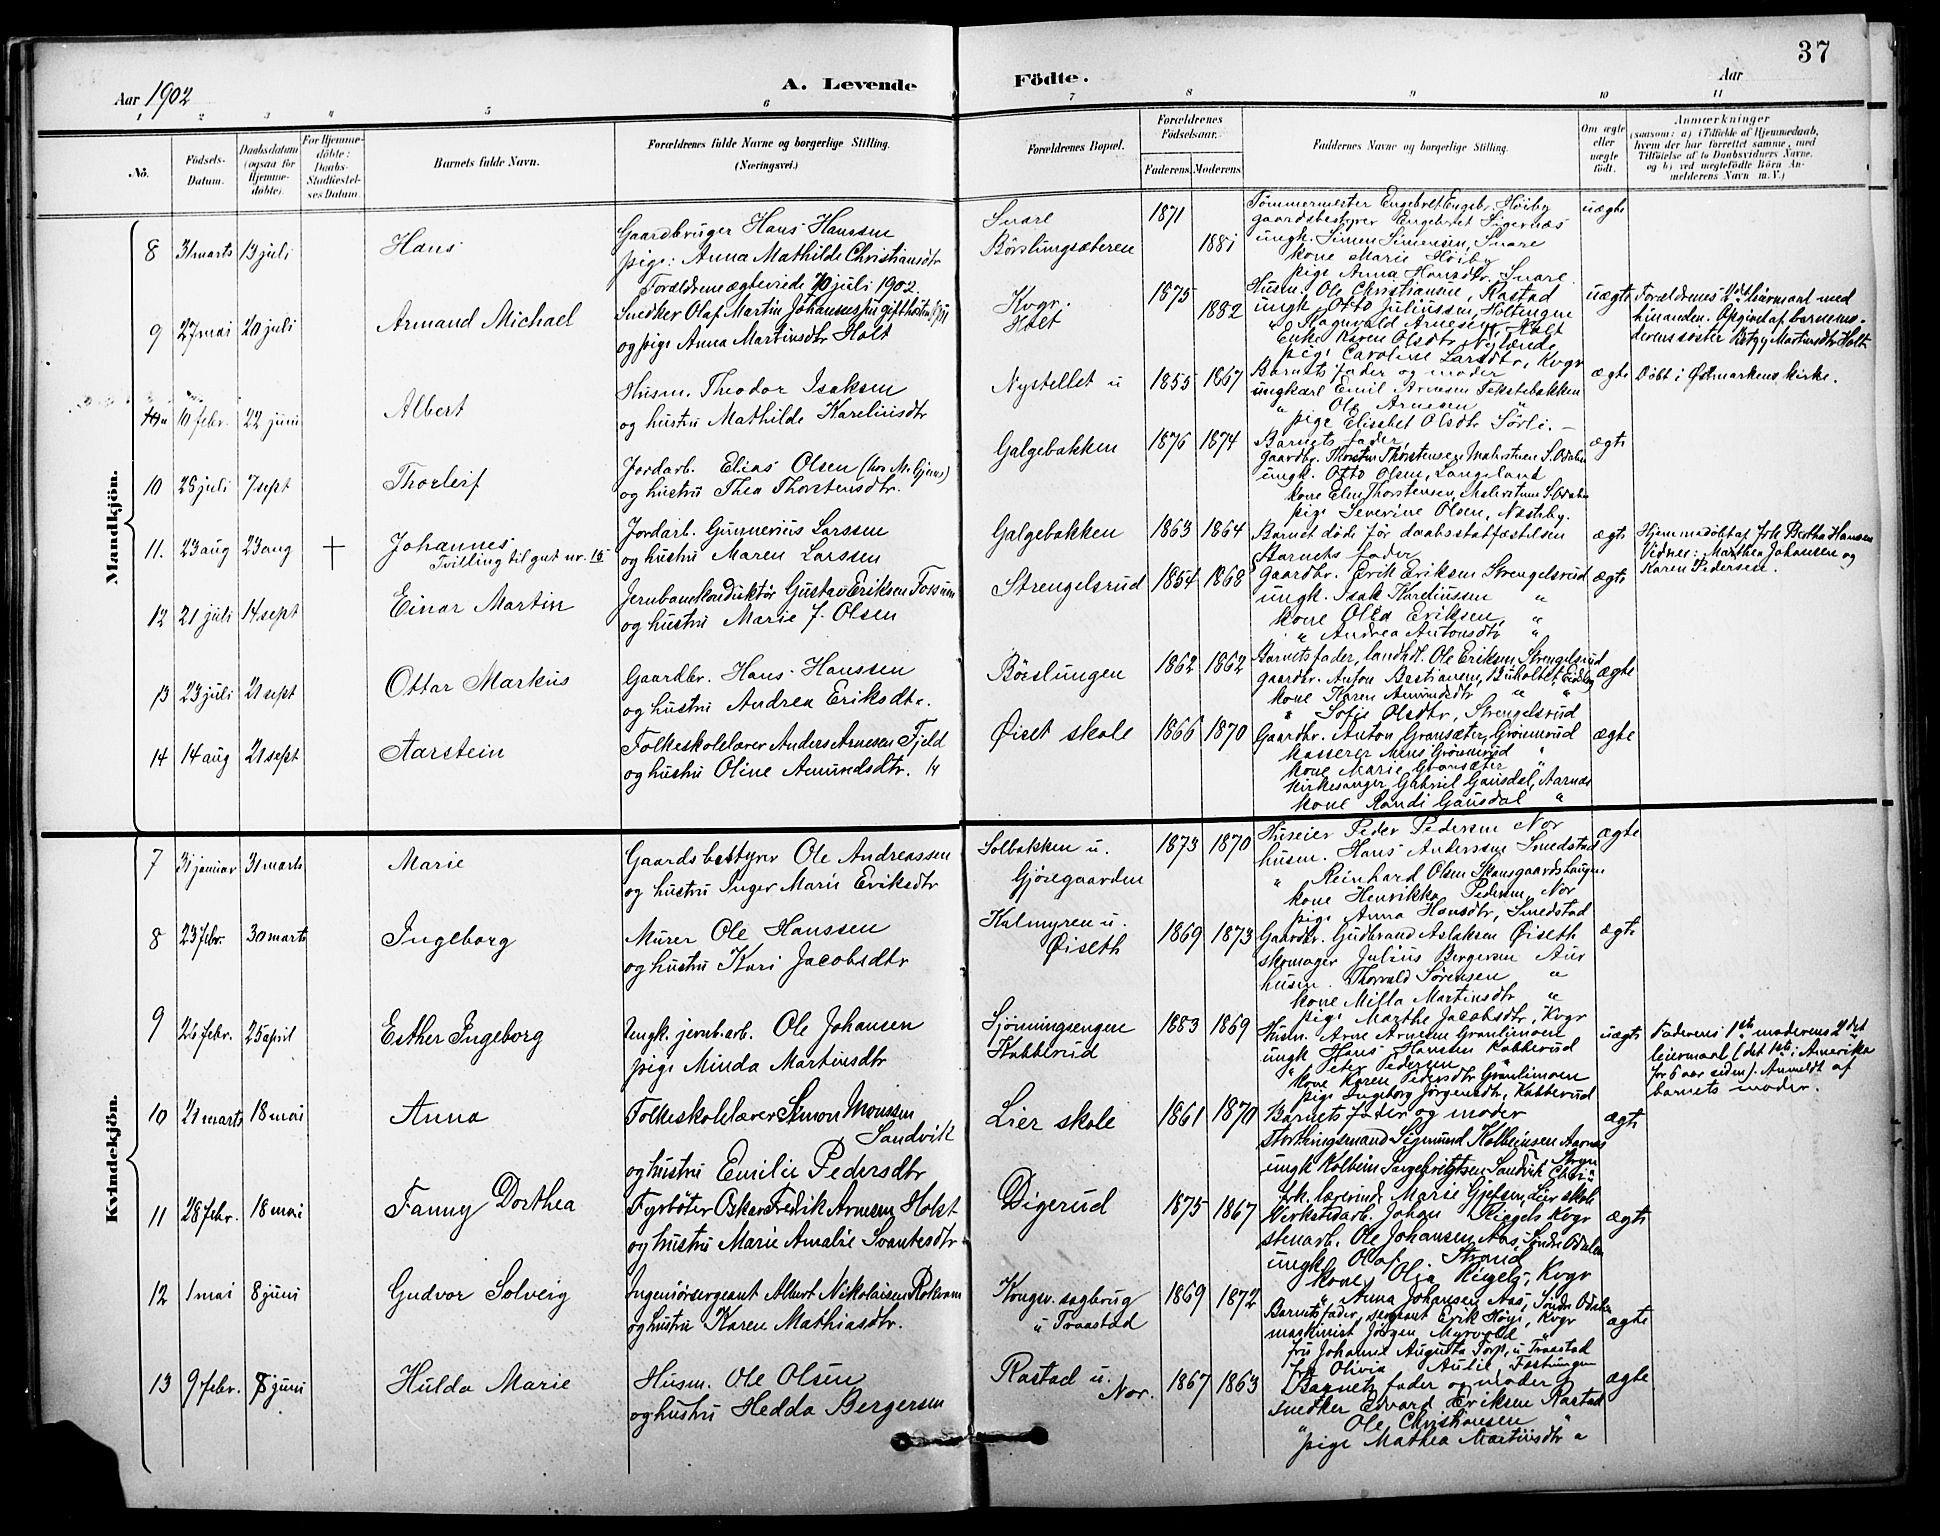 37
Aar 1902
A. Levende Födte.
Aar
1 2 3 4 5 6 7 8 9 10 11
No.
Födsels-Datum.
Daabsdatum (ogsaa for Hjemme-döbte).
For Hjemme-döbte: Daabs-Stadfæstel-ses Datum.
Barnets fulde Navn.
Forældrenes fulde Navne og borgerlige Stilling. (Næringsvei.)
Forældrenes Bopæl.
Forældrenes Födselsaar.
Faderens. Moderens.
Faddernes Navne og borgerlige Stilling.
Om ægte eller uægte födt.
Anmærkninger
(saasom: a) i Tilfælde af Hjemmedaab, hvem der har forrettet samme, med Tilföielse af to Daabsvidners Navne, og b) ved uægtefödte Börn Anmelderens Navn m. V.)
Mandkjön.
8 31 marts 13 juli Hans
Gaardbruger Hans Hanssen
pige: Anna Mathilde Christiansdtr
Forældrene ægteviede juli 1902.
Snare
Börslungsæteren
1871 1881
Tømmermester Engebret Engebr. Höiby
gaardsbestyrer Engebret Sigernæs
ungk. Simen Simensen, Snare
kone Marie Höiby
pige Anna Hansdtr, Snare
uægte
9 27 mai 20 juli Armand Michael
Snedker Olaf Martin Johannes
og pige Anna Martinsdtr Holt
Kvgr.
Holt
1875 1882
Husm. Ole Christiansen, Rastad
ungk. Otto Juliussen, Holtengne
" Ragnvald Arnesen, Holt
Enke Karen Olsdtr, Nylænde
pige Caroline Larsdtr, Kvgr
uægte
Forældrenes leiermaal med
hinanden. Opgivet af barnemo-
derens søster Betzy Martinsdtr Holt
10a 10 febr. 22 juni Albert
Husm. Theodor Isaksen
og hustru Mathilde Karelinisdtr
Nystellet u
1855 1867
Barnets fader og moder
ungkarl Emil Arnesen Tekstebakken
" Ole Arnesen "
pige Elisabet Olsdtr Sörli. —
ægte
Döbt i Østmarkens kirke.
10 25 juli 7 sept Thorleif
Jordarb. Elias Olsen (hos M. Gjems)
og hustru Thea Thorstensdtr.
Galgebakken
1876 1874
Barnets fader,
gaardbr. Thorsten Thorstensen Malerstuen S. Odalen
ungk. Otto Olsen, Langeland
kone Elen Thorstensen, Malerstuen S. Odalen
pige Severine Olsen, Næsteby.
ægte
11. 23 aug 23 aug + Johannes
Tvilling til gut nr. 15
Jordarb. Gunnerius Larssen
og hustru Maren Larssen
Galgebakken
1863 1864
Barnet döde før daabsstadfæstelsen
ægte
Hjemmedöbt af frk Bertha Hansen
Vidner: Marthea Johansen og
Karen Pedersen.
12 21 juli 14 sept Einar Martin
Jernbanekonduktör Gustav Eriksen Fossum
og hustru Marie J. Olsen
Strengelsrud
1854 1868
Barnets fader
Gaardbr. Erik Eriksen Strengelsrud
ungk. Isak Kareliussen "
kone Olea Eriksen, "
" Andrea Antonsdtr "
ægte
13 23 juli 21 sept Ottar Markus
Gaardbr. Hans Hanssen
og hustru Andrea Eriksdtr.
Börslungen
1862 1862
Barnets fader, landhdl. Ole Eriksen Strengelsrud
gaardbr. Anton Bastiansen, Bukoltet, Eidskog
kone Karen Amundsdtr " "
" Sofie Olsdtr, Strengelsrud
ægte
14 14 aug 21 sept Aarstein
Folkeskolelærer Anders Arnesen Fjeld
og hustru Oline Amundsdtr. "
Øiset skole
1866 1870
Gaardbr. Anton Gransæter, Grönnerud
kasserer Mons Grönnerud "
kone Marie Gransæter "
kirkesanger Gabriel Gausdal, Aarnæs
kone Randi Gausdal "
ægte
Kvindekjön.
7 31 januar 31 marts Marie
Gaardsbestyrer Ole Andreassen
og hustru Inger Marie Eriksdtr
Solbakken u.
Gjösegaarden
1873 1870
Huseier Peder Pedersen Nor
husm. Hans Anderssen Smedstad
" Reinhard Olsen Skansgaardshaugen
kone Henrikka Pedersen, Nor
pige Anna Hansdtr, Smedstad
ægte
8 23 febr. 30 marts Ingeborg
Murer Ole Hanssen
og hustru Kari Jacobsdtr
Kalmyren u.
Øiseth
1869 1873
Gaardbr. Gudbrand Aslaksen Øiseth
skomager Julius Bergersen Aur
husm. Thorvald Sørensen "
kone Milla Martinsdtr "
pige Marthe Jacobsdtr, Kvgr
ægte
9 26 febr. 25 april Esther Ingeborg
Ungk. jernb.arb. Ole Johansen
pige Minda Martinsdtr
Sjönningsengen
Kabberud
1883 1869
Husm. Arne Arnesen Granlimoen
ungk Hans Hansen Kabberud
" Peter Pedersen "
kone Karen Pedersdtr Granlimoen
pige Ingeborg Jørgensdtr, Kabberud
uægte
Faderens 1ste moderens 2det
leiermaal (det 1ste i Amerika
for 6 aar siden). Anmeldt af
barnets moder.
10 21 marts 18 mai Anna
Folkeskolelærer Simon Monssen
Sandvik
og hustru Emilie Pedersdtr
Lier skole
1861 1870
Barnets fader og moder
storthingsmand Sigmund Kolbeinsen Aarnæs
ungk Kolbein Sandvik
frk. lærerinde Marie Gjefsen, Lier skole
ægte
11 28 febr. 18 mai Fanny Dorthea
Fyrböter Oskar Fredrik Arnesen Holst
og hustru Marie Amalie Svantesdtr
Digerud
1875 1867
Verkstedarb. Johan Riegels Kvgr
stenarb. Ole Johansen Aas, Söndre Odalen
ungk Olaf Strand
kone Olga Riegels, Kvgr
" Anna Johansen Aas, Söndre Odalen
ægte
12 1 mai 8 juni Gudvor Solveig
Ingeniörsergeant Albert Nikolaisen Rokvam
og hustru Karen Mathiasdtr.
Kongsv. sagbrug
u Traastad
1869 1872
Barnets fader, sergeant Erik Höye, Kvgr
maskinist Jörgen Myrvold "
fru Johanne Augusta Torp, u Traastad
frk Olivia Aulie, Fæstningen
ægte
13 9 febr. 8 juni Hulda Marie
Husm. Ole Olsen
og hustru Hedda Bergersen
Rastad u.
Nor.
1867 1863
Barnets fader og moder
snedker Edvard Eriksen Rastad
" Ole Christiansen "
pige Mathea Martinsdtr "
ægte